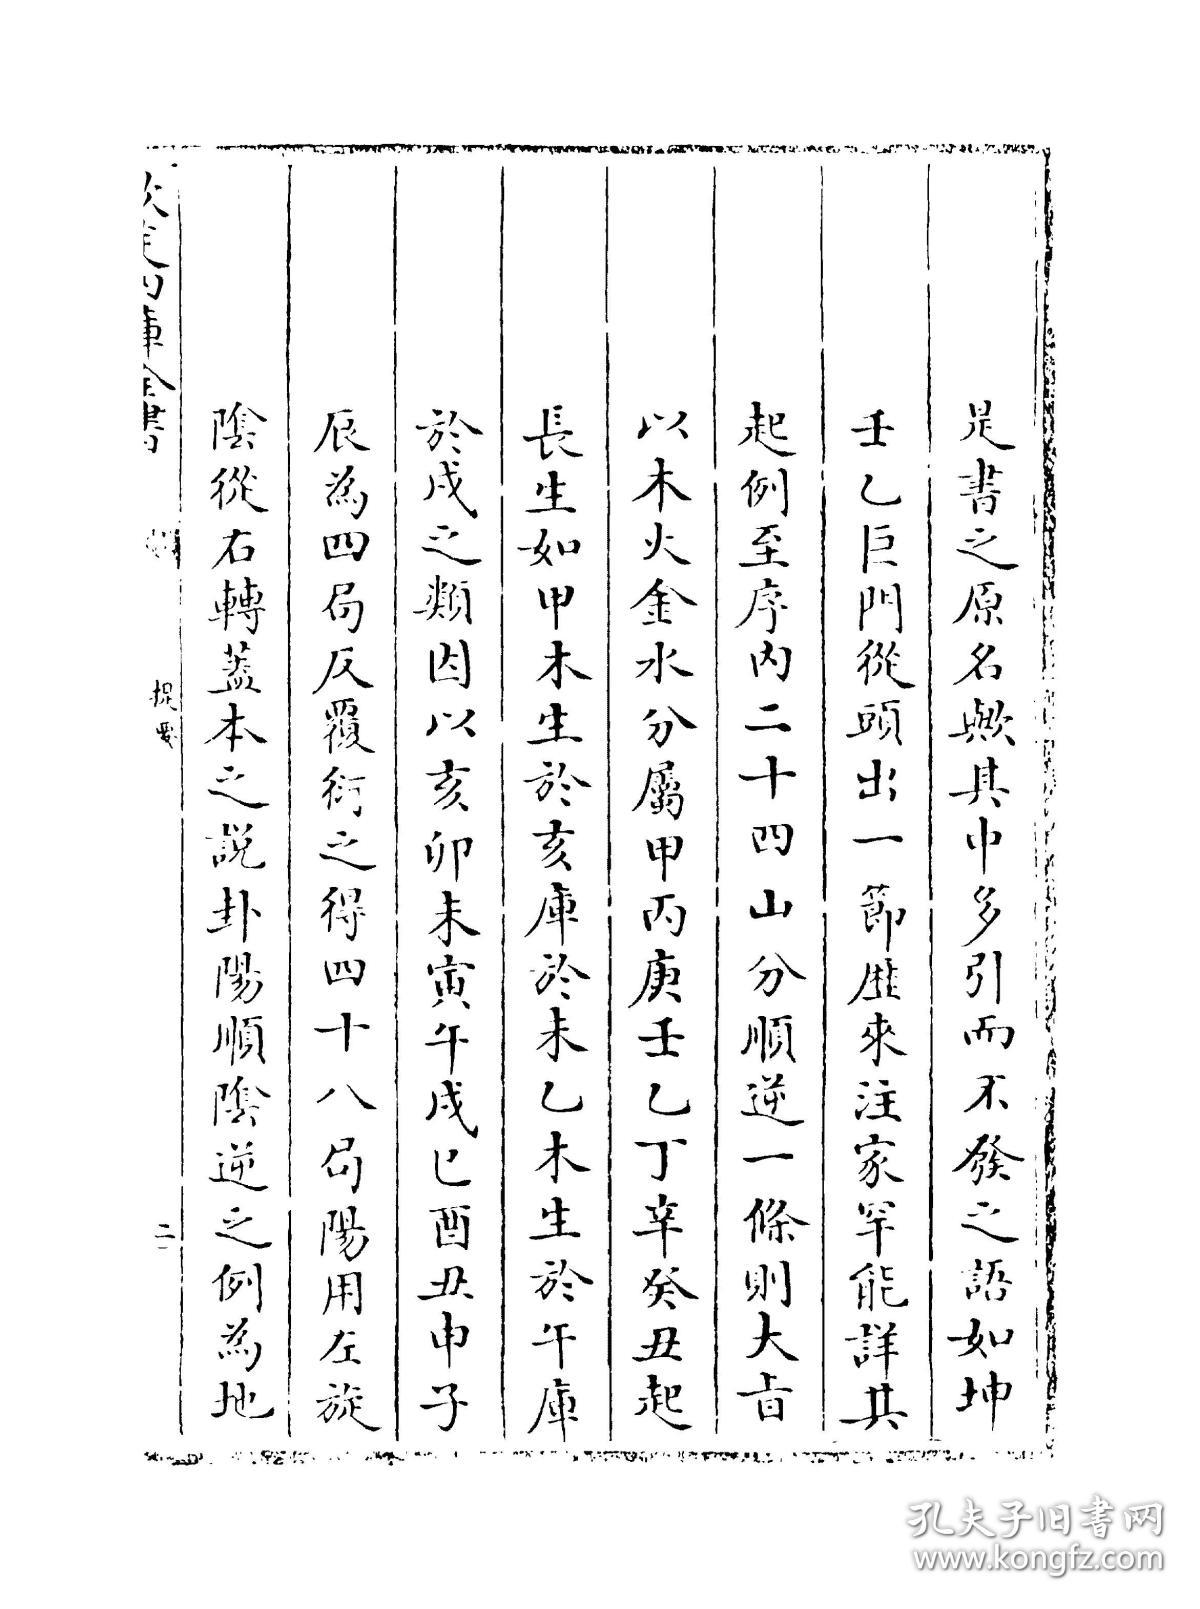 是書之原名歟其中多引而不發之語如坤
壬乙巨門從頭出一節歷來注家罕能詳其
起例至序內二十四山分順逆一條則大旨
以木火金水分屬甲丙庚壬乙丁辛癸丑起
長生如甲木生於亥庫於未乙木生於午庫
於戌之類因以亥卯未寅午戌巳酉丑申子
辰為四局反覆衍之得四十八局陽用左旋
陰從右轉蓋本之說卦陽順陰逆之例為地
欽定四庫全書
提要
二
孔夫子旧书网
www.kongfz.com